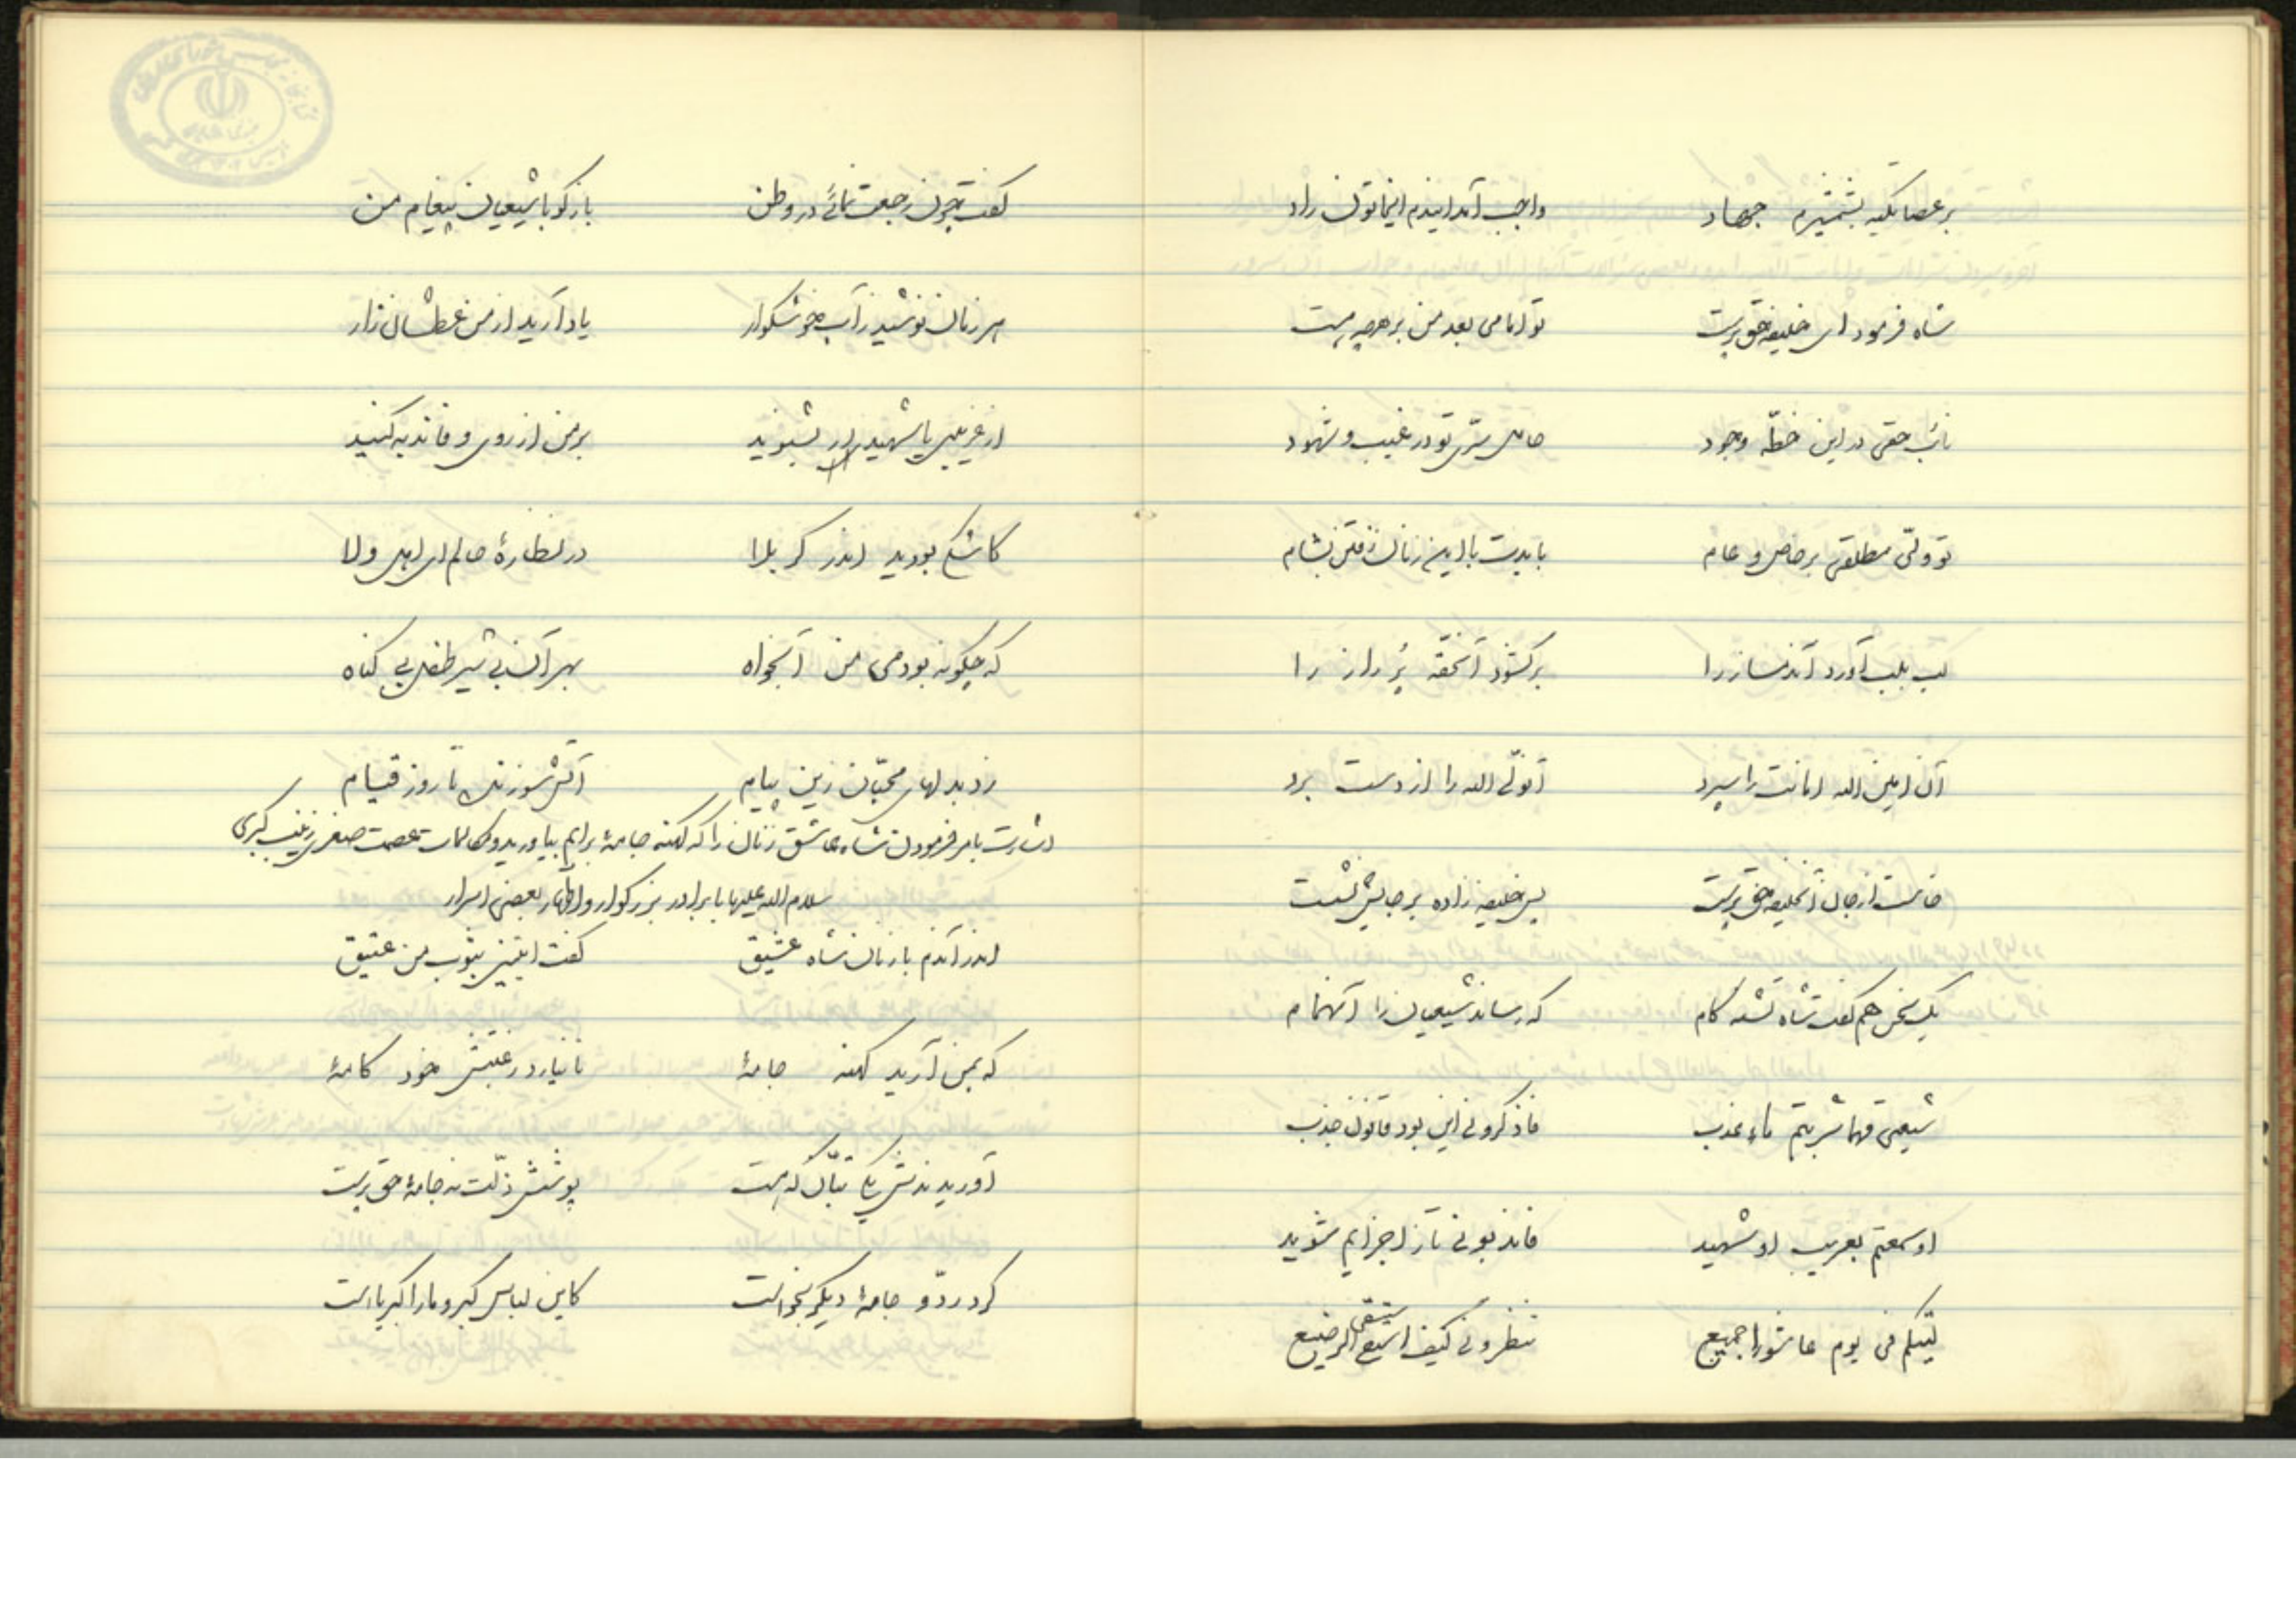 بر عصا تکیه بشمشیرم جهاد واجب آمد ایندم ایخاتون راد
شاه فرمود ای خلیفه حق پرست تو امامی بعد من بر هرچه هست
نائب حقی در این خطّه وجود حامل سرّی تو در غیب و شهود
تو ولیّ مطلقی بر خاص و عام بایدت با این زنان رفتن بشام
لب بلب آورد آندمساز را برگشود آنحقه پُر راز را
آن امین الله امانت را سپرد آنولی الله را از دست برد
خاست از جا آنخلیفه حق پرست پس خلیفه زاده بر جایش نشست
یک سخن هم گفت شاه تشنه کام که رساند شیعیانرا آنهمام
شیعتی مهما شربتم ماء عذب فاذکرونی این بود قانون جذب
او سمعتم بغریب او شهید فاندبونی تا ز اجزایم شوید
لیتکم فی یوم عاشورا جمیع تنظرونی کیف استسقی الرضیع
گفت چون رجعت نمائی در وطن بازگو با شیعیان پیغام من
هر زمان نوشید ز آب خوشگوار یاد آرید از من عطشان زار
از غریبی یا شهیدی بشنوید بر من از روی وفا ندبه کنید
کاشکی بودید اندر کربلا در نظارهٔ حالم ای اهل ولا
که چگونه بودمی من آبخواه بهر آن بی شیر طفل بی گناه
زد بدلهای محبّان زین پیام آتش سوزنده تا روز قیام
اشارت بامر فرمودن شاه عاشق زنان را که کهنه جامهٔ برایم بیاورید و مکالمات عصمت صغری زینب کبری
سلام الله علیها با برادر بزرگوار و اظهار بعضی اسرار
اندر آندم با زنان شاه عشیق گفت ایتینی بثوب من عتیق
که بمن آرید کهنه جامهٔ تا نیارد رغبتش خود کامهٔ
آوریدندش یکی تبّان که هست پوشش ذلّت نه جامهٔ حق پرست
کرد ردّ و جامهٔ دیگر بخواست کاین لباس کبر و ما را کبریاست